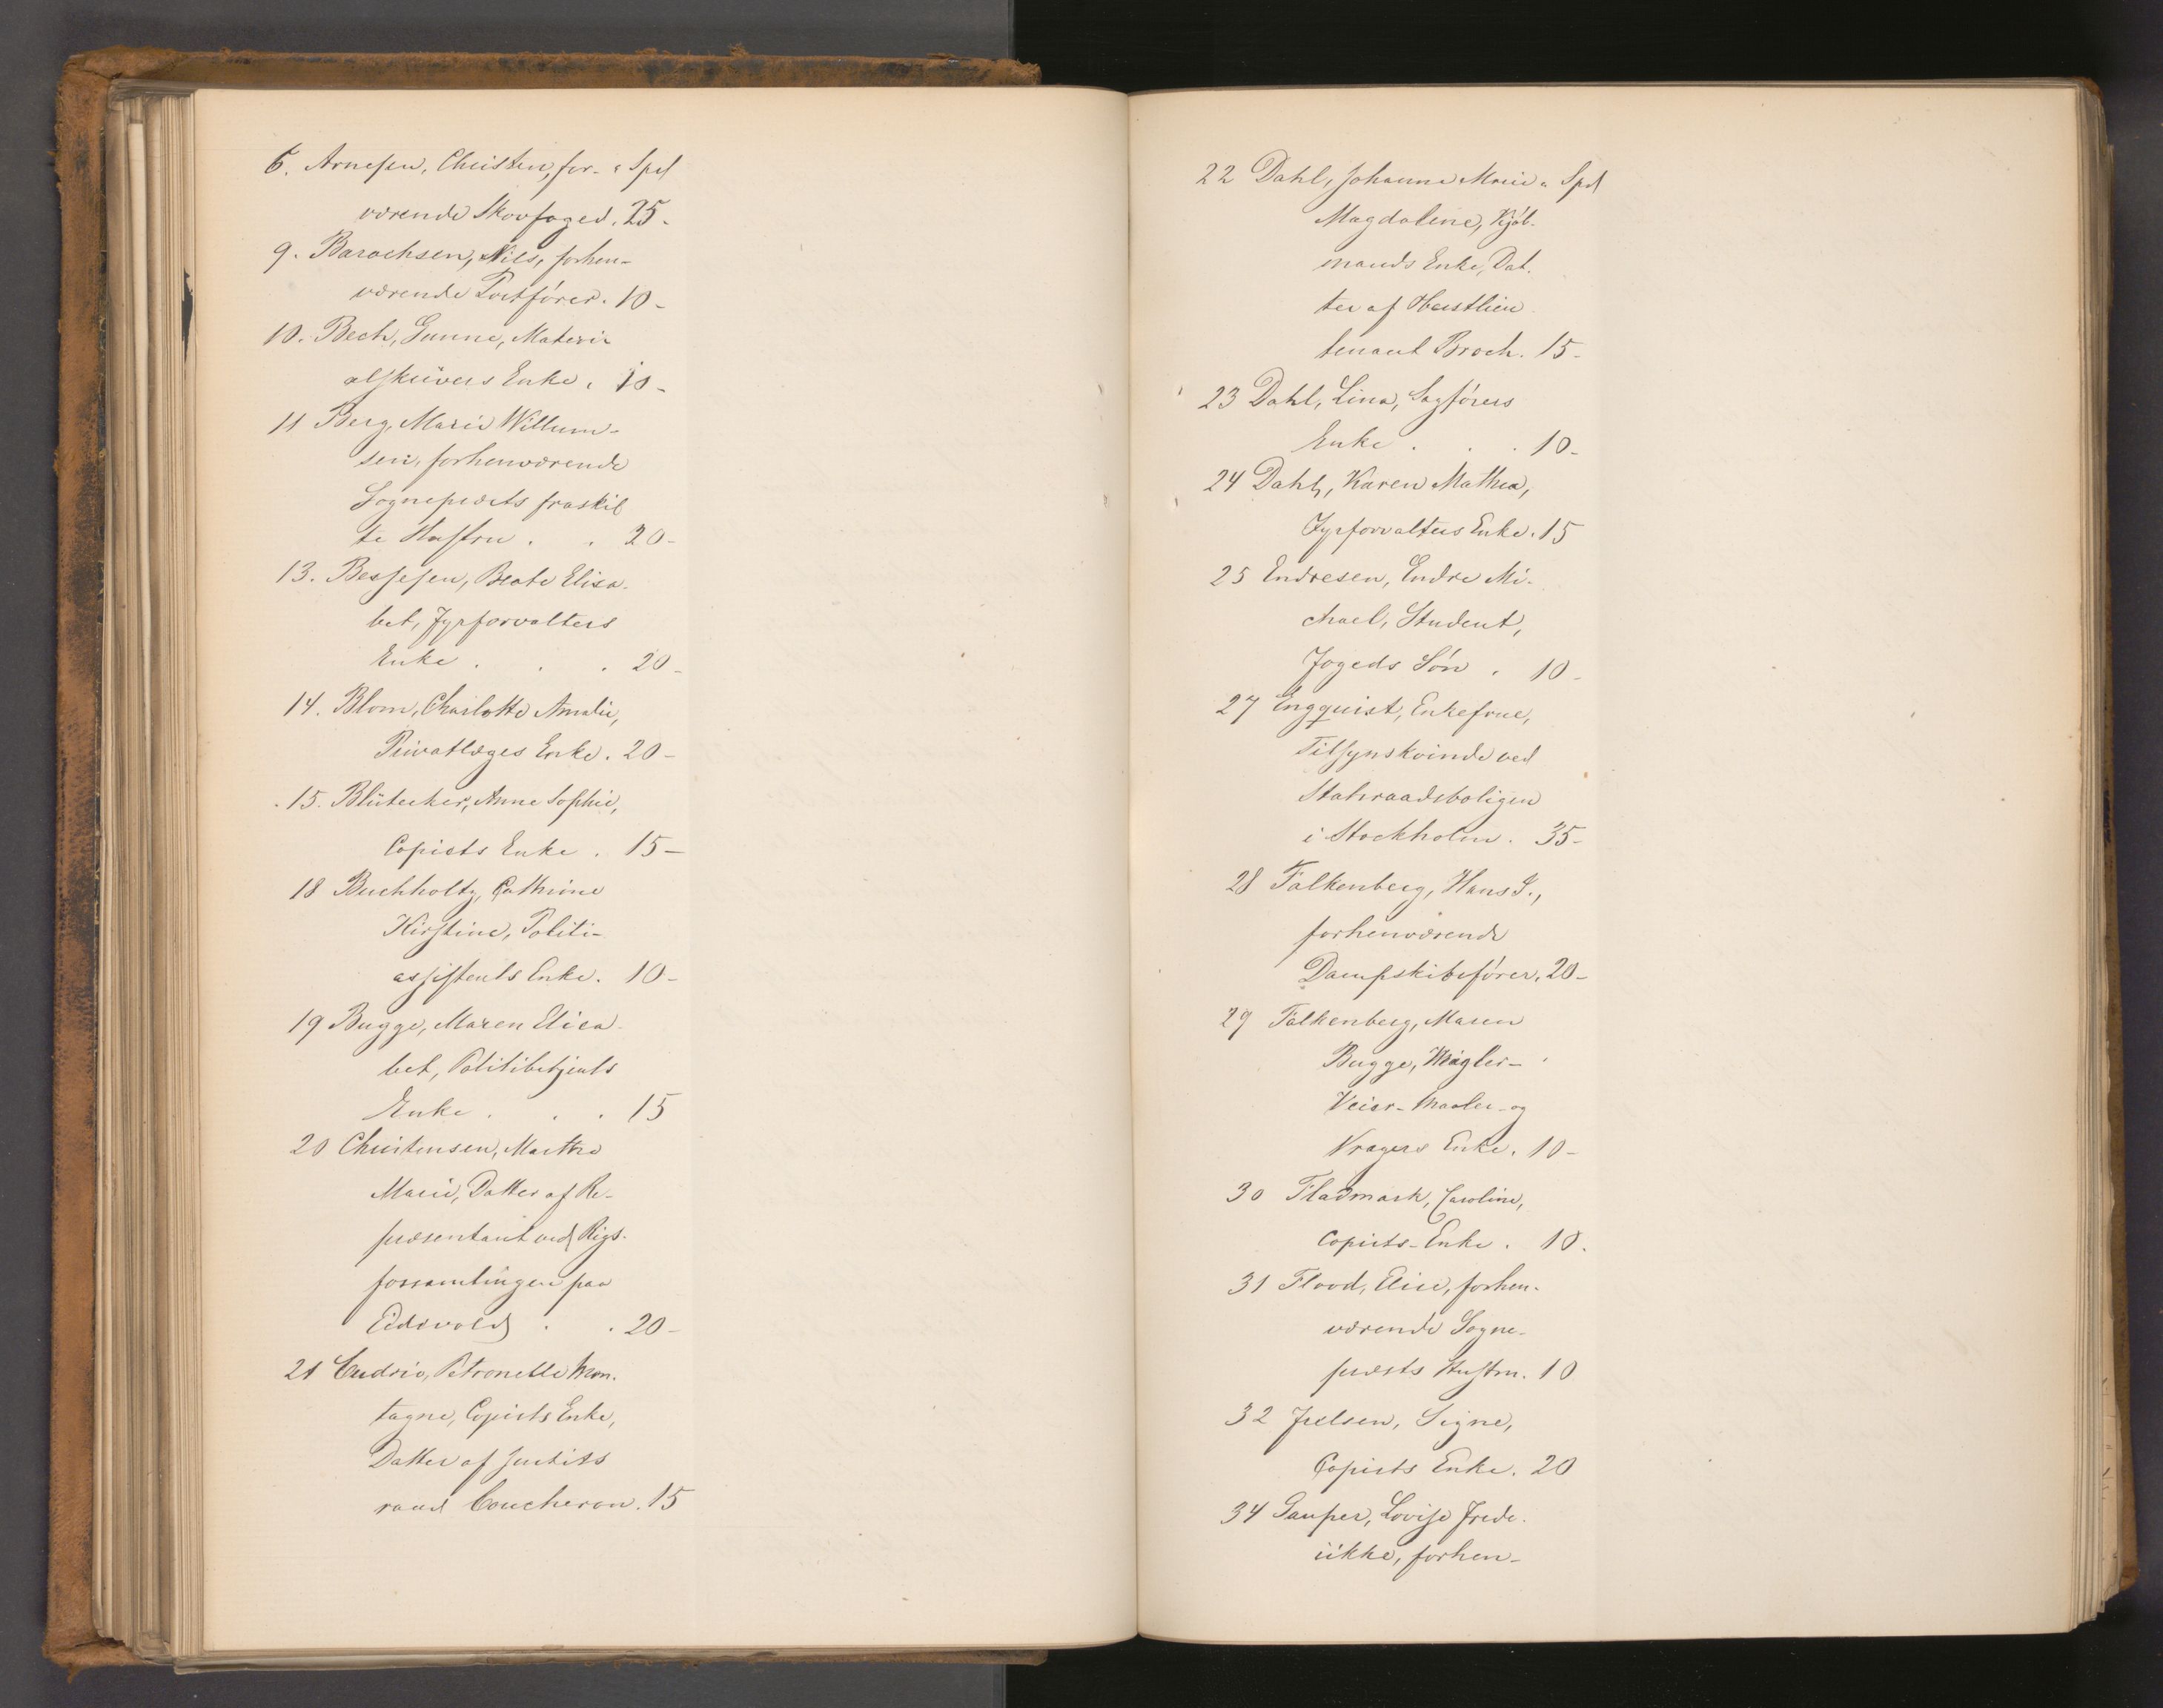 6. Arnesen, Christen, for- a Spd
værende Skovfoged. 25-
9. Barochsen, Nils, forhen-
værende Postfører. 10-
10. Bech, Gunne, Materi-
alskrivers Enke. 10-
11 Berg, Marie Willum-
sen, forhenværende
Sogneprests fraskil
te Hustru . . 20-
13. Bessesen, Beate Elisa-
bet, Fyrforvalters
Enke . . . 20-
14. Blom, Charlotte Amalie,
Privatlæges Enke. 20-
15. Blütecher, Anne Sophie,
Copists Enke . 15-
18 Buchholtz, Cathrine
Kirstine, Politi-
assistents Enke. 10-
19 Bugge, Maren Elisa-
bet, Politibetjents
Enke . . . 15
20 Christensen, Marthe
Marie, Datter af Re-
præsentant ved Rigs-
forsamlingen paa
Eidsvold . . 20-
21 Cudrio, Petronelle Mon-
tagne, Copists Enke,
Datter af Justits
raad Coucheron. 15
22 Dahl, Johanne Marie a Spd
Magdalene, Kjøb-
mands Enke, Dat-
ter af Oberstlieu
tenant Broch. 15-
23 Dahl, Lina, Sagførers
Enke . . . 10-
24 Dahl, Karen Mathea,
Fyrforvalters Enke. 15
25 Endresen, Endre Mi-
chael, Student,
Fogeds Søn . 10-
27 Engquist, Enkefrue,
Tilsynskvinde ved
Statsraadsboligen
i Stockholm. 35-
28 Falkenberg, Hans J.,
forhenværende
Dampskibsfører. 20-
29 Falkenberg, Maren
Bugge, Mægler-
Veier- Maaler- og
Vragers Enke. 10-
30 Fladmark, Caroline,
Copists-Enke . 10.
31 Flood, Elise, forhen-
værende Sogne-
prests Hustru. 10
32 Juelsen, Signe,
Copists Enke. 20
34 Gauper, Lovise Frede-
rikke, forhen-